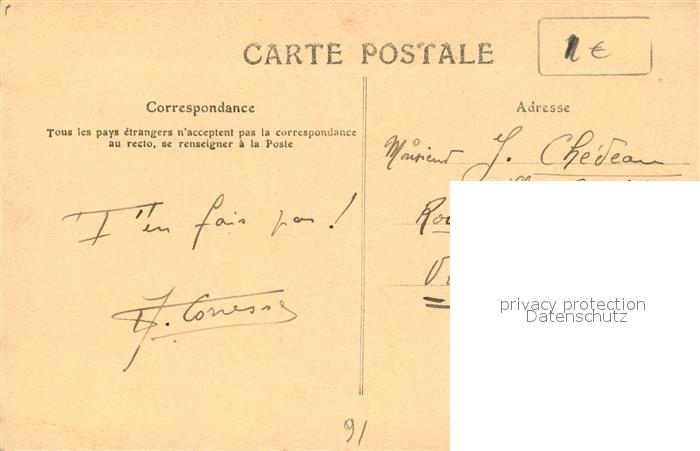 CARTE POSTALE
1 €
Correspondance
Tous les pays étrangers n'acceptent pas la correspondance
au recto, se renseigner à la Poste
Adresse
Monsieur J. Chédeau
T'en fais pas !
privacy protection
Datenschutz
91